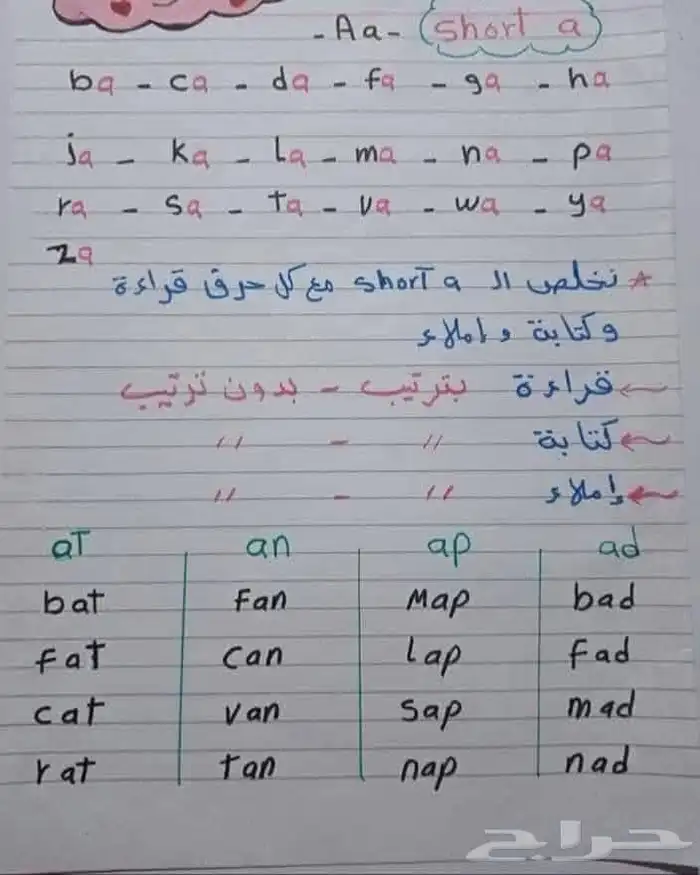 - Aa - short a
ba - ca - da - fa - ga - ha
ja - ka - la - ma - na - pa
ra - sa - ta - va - wa - ya
za
* نخلص الـ short a مع كل حرق قراءة
وكتابة وإملاء
← قراءة بترتيب - بدون ترتيب
← كتابة " - "
← إملاء " - "
at an ap ad
bat fan map bad
fat can lap fad
cat van sap mad
rat tan nap nad
حراج